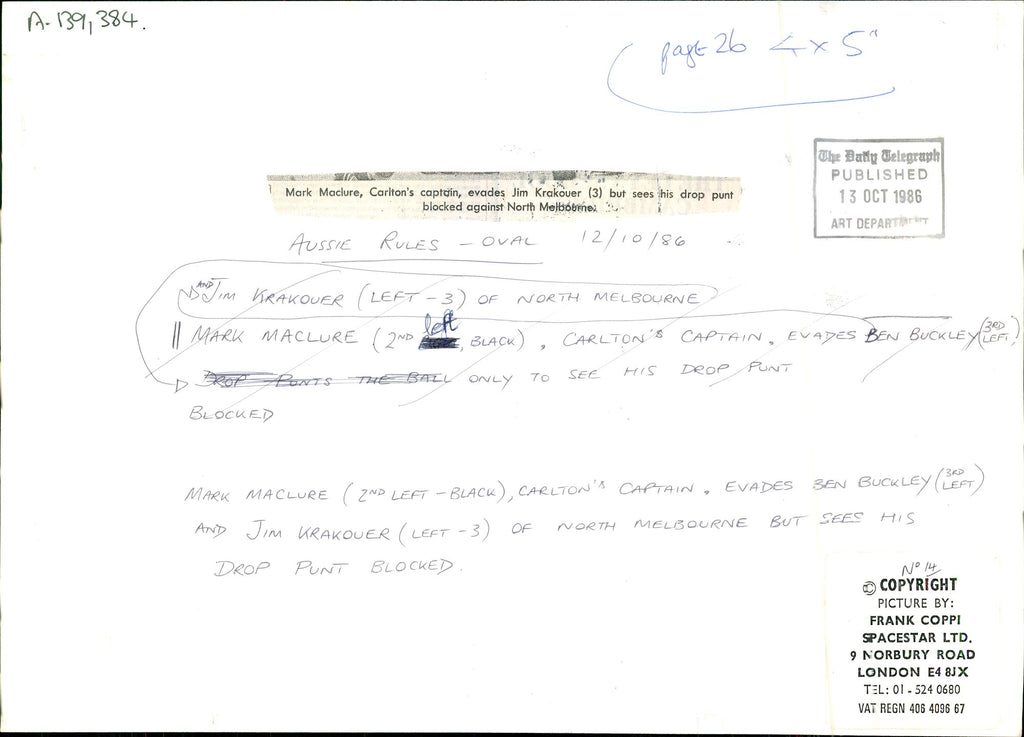 A-139,384.
page 26 4 x 5"
The Daily Telegraph
PUBLISHED
13 OCT 1986
ART DEPARTMENT
Mark Maclure, Carlton's captain, evades Jim Krakouer (3) but sees his drop punt
blocked against North Melbourne.
AUSSIE RULES - OVAL 12/10/86
AND JIM KRAKOUER (LEFT - 3) OF NORTH MELBOURNE
MARK MACLURE (2ND left, BLACK), CARLTON'S CAPTAIN. EVADES BEN BUCKLEY (3RD LEFT)
DROP PUNTS THE BALL ONLY TO SEE HIS DROP PUNT
BLOCKED
MARK MACLURE (2ND LEFT - BLACK), CARLTON'S CAPTAIN. EVADES BEN BUCKLEY (3RD LEFT)
AND JIM KRAKOUER (LEFT - 3) OF NORTH MELBOURNE BUT SEES HIS
DROP PUNT BLOCKED.
No 14
© COPYRIGHT
PICTURE BY:
FRANK COPPI
SPACESTAR LTD.
9 NORBURY ROAD
LONDON E4 8JX
TEL: 01 - 524 0680
VAT REGN 406 4096 67